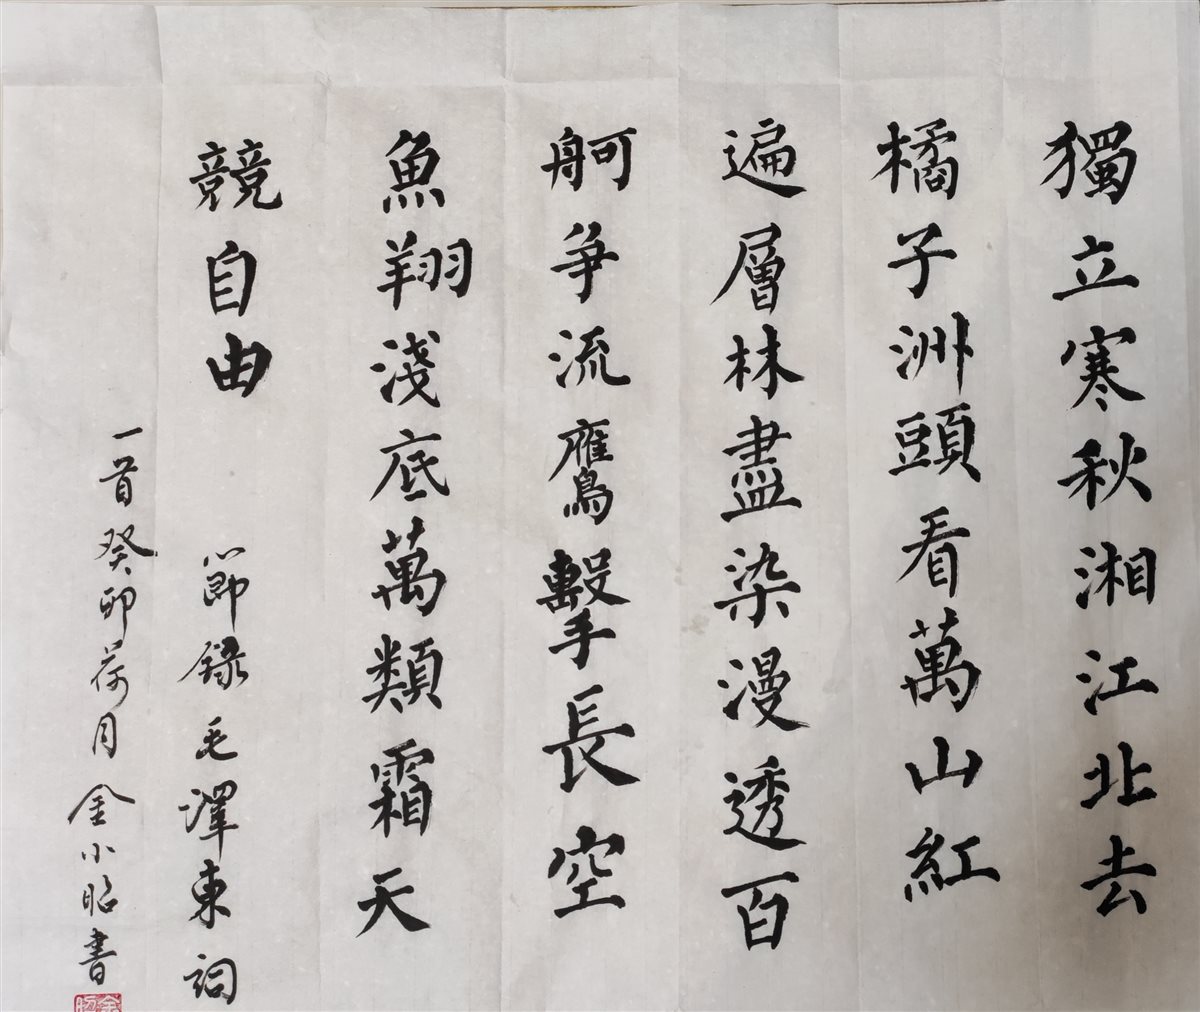 獨立寒秋湘江北去
橘子洲頭看萬山紅
遍層林盡染漫透百
舸爭流鷹擊長空
魚翔淺底萬類霜天
競自由
節錄毛澤東詞
一首癸卯荷月金小昭書